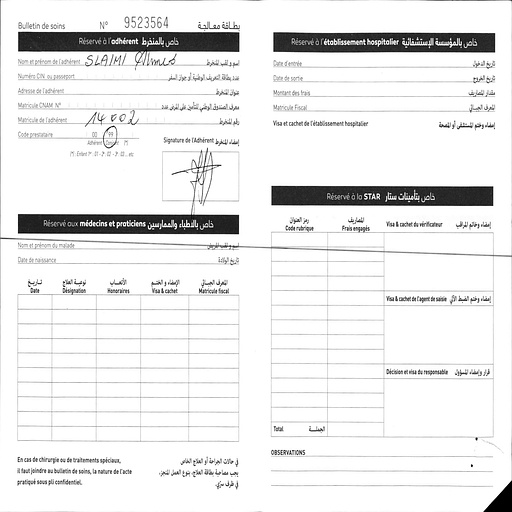 Bulletin de soins N° 9523564 بطاقة معالجة
Réservé à l'adhérent خاص بالمنخرط
Nom et prénom de l'adhérent SLAIMI Ahmed اسم و لقب المنخرط
Numéro CIN ou passeport عدد بطاقة التعريف الوطنية أو جواز السفر
Adresse de l'adhérent عنوان المنخرط
Matricule CNAM N° معرف الصندوق الوطني للتأمين على المرض عدد
Matricule de l'adhérent 14002 رقم المنخرط
Code prestataire 00 99
Adhérent Conjoint (*)
Signature de l'Adhérent إمضاء المنخرط
Réservé aux médecins et praticiens خاص بالأطباء والممارسين
Nom et prénom du malade اسم و لقب المريض
Date de naissance تاريخ الولادة
تاريخ نوعية العلاج الأتعاب الإمضاء و الختم المعرف الجبائي
Date Désignation Honoraires Visa & cachet Matricule fiscal
En cas de chirurgie ou de traitements spéciaux,
il faut joindre au bulletin de soins, la nature de l'acte
pratiqué sous pli confidentiel.
في حالات الجراحة أو العلاج الخاص
يجب مصاحبة بطاقة العلاج، بنوع العمل المنجز،
في ظرف سري.
Réservé à l'établissement hospitalier خاص بالمؤسسة الإستشفائية
Date d'entrée تاريخ الدخول
Date de sortie تاريخ الخروج
Montant des frais مقدار المصاريف
Matricule Fiscal المعرف الجبائي
Visa et cachet de l'établissement hospitalier إمضاء وختم المستشفى أو المصحة
Réservé à la STAR خاص بتأمينات ستار
رمز العنوان المصاريف
Code rubrique Frais engagés
Visa & cachet du vérificateur إمضاء وخاتم المراقب
Visa & cachet de l'agent de saisie إمضاء وختم الضبط الآلي
Décision et visa du responsable قرار وإمضاء المسؤول
Total الجملة
OBSERVATIONS